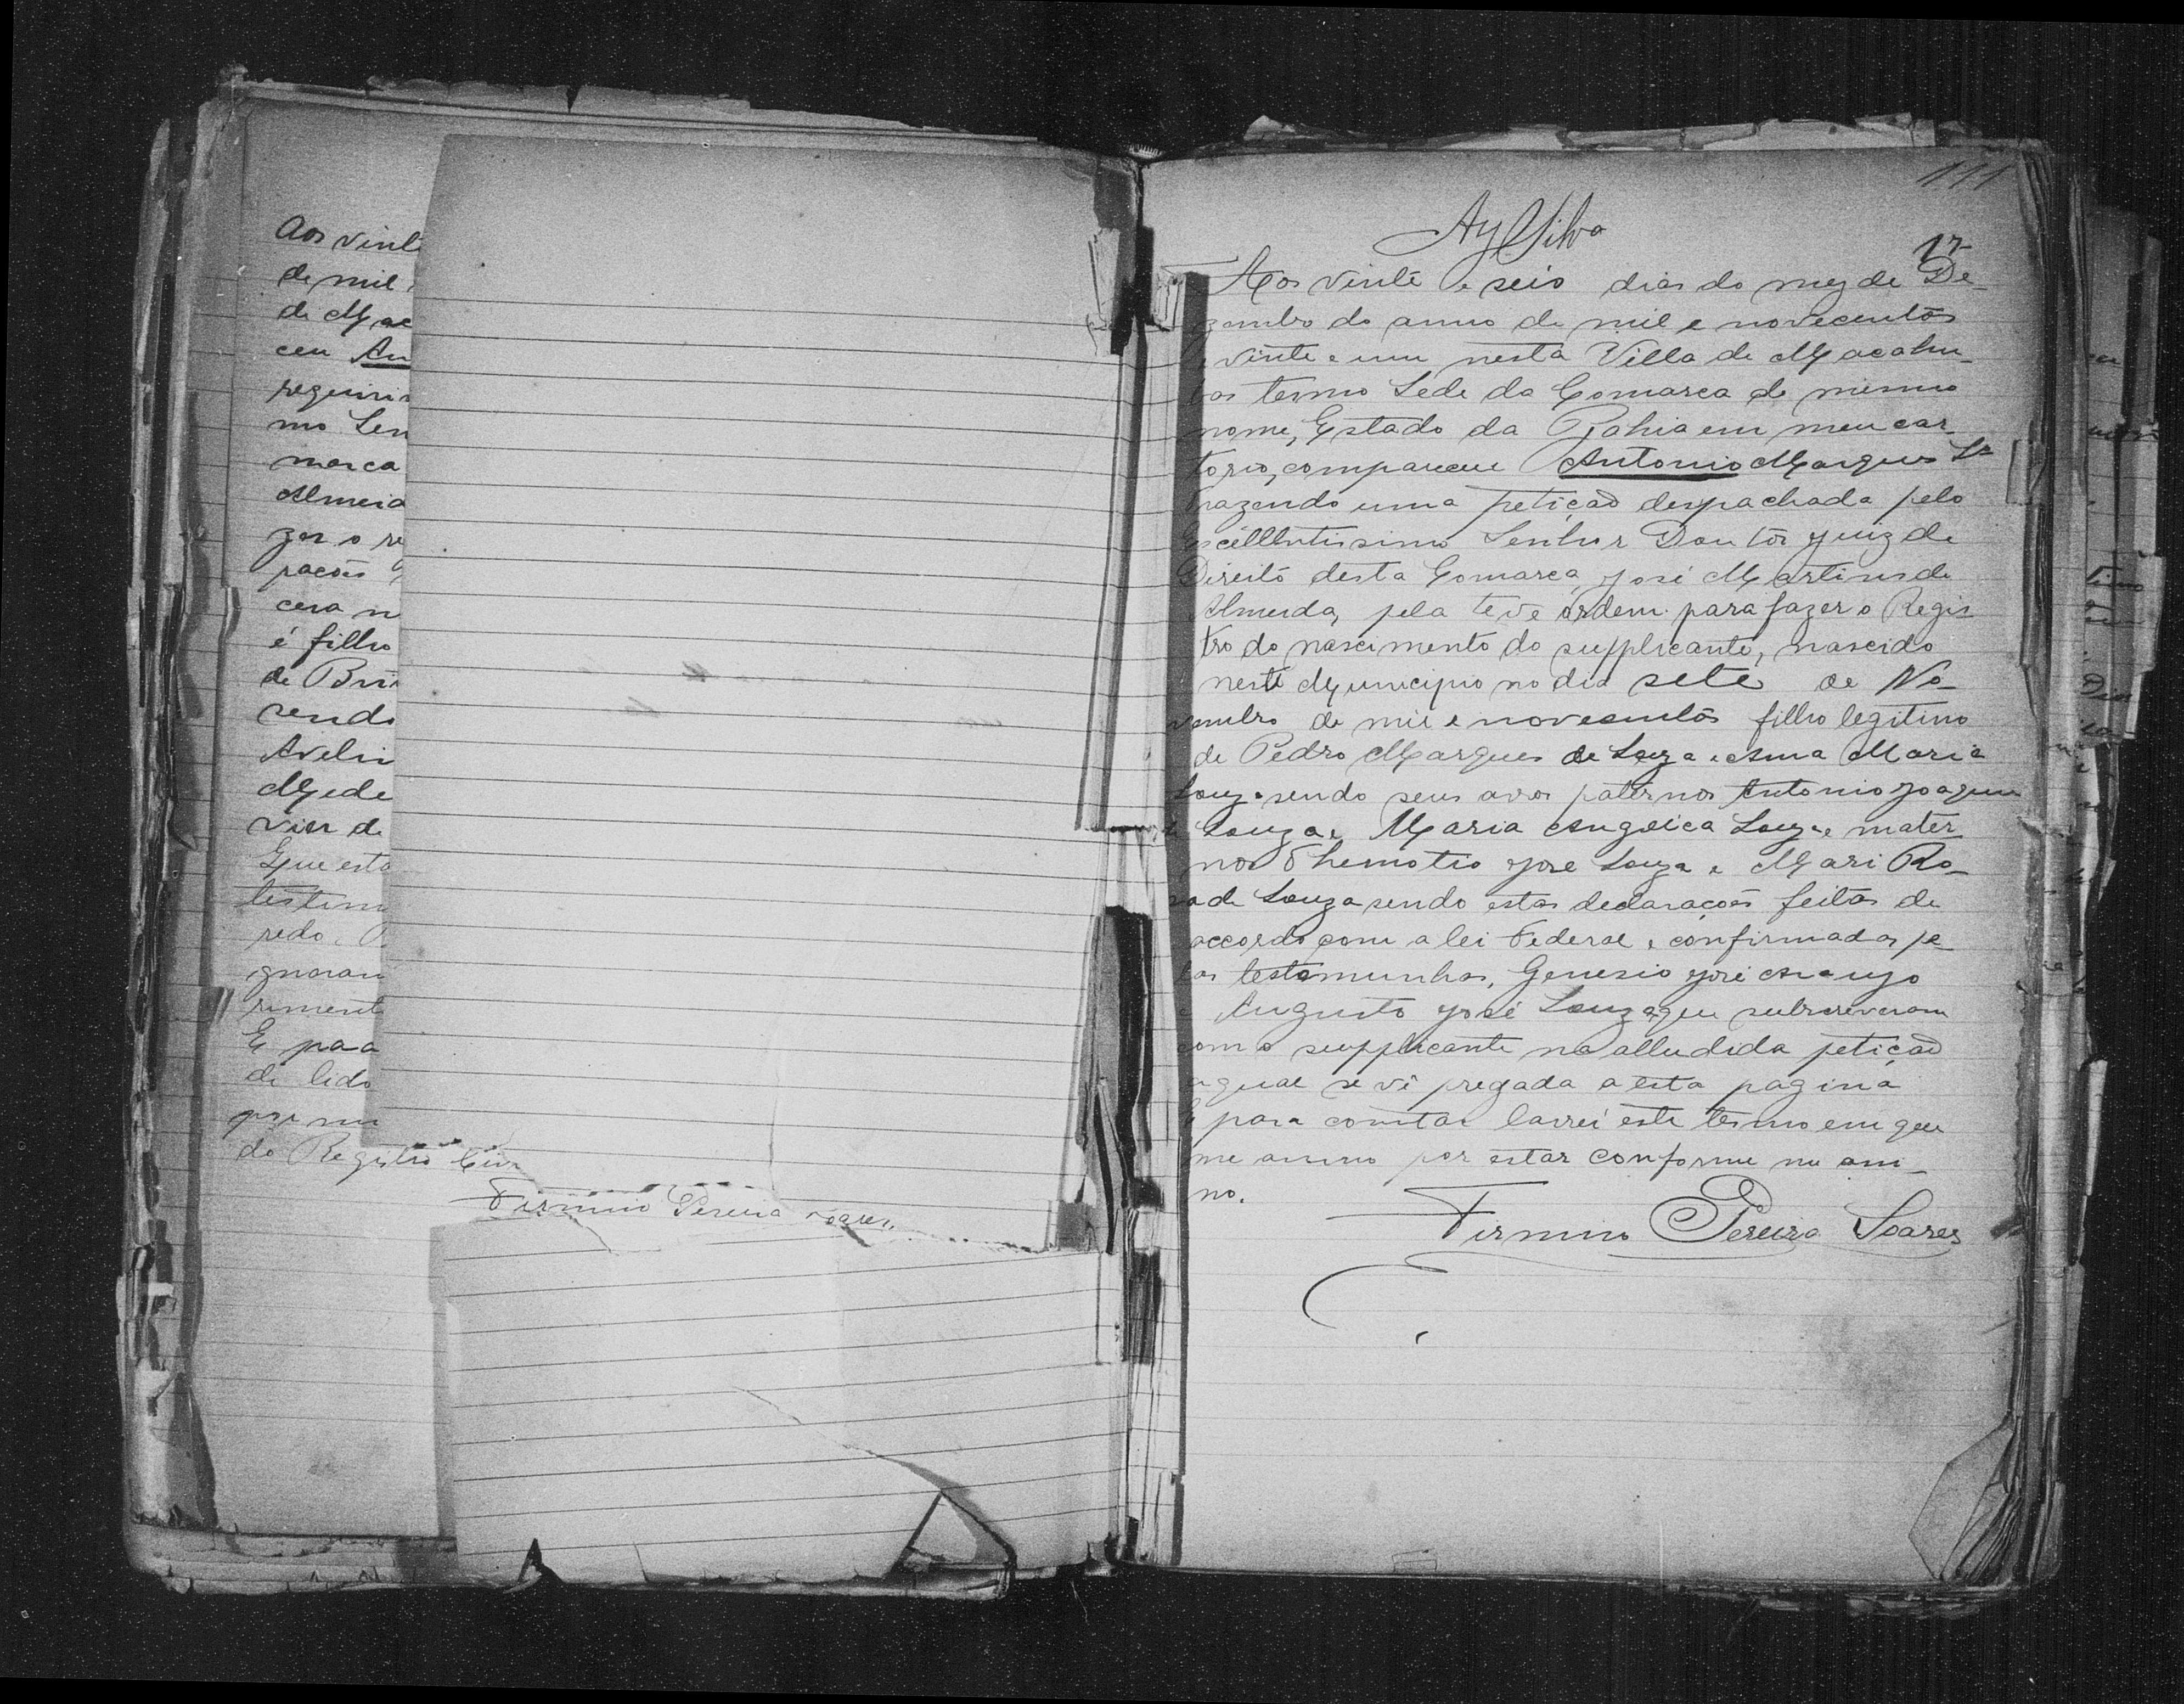 Aos vinte
de mil
de Mac
ceu An
requeri
mo Sen
marca
Almeid
zer o re
pacões
cera n
é filho
de Bri
sendo
Aveli
Mede
vier de
Que esta
testim
redo
gnoran
riment
E para
de lido
por mi
do Registro Civ
Firmino Pereira Soares.
111
AySilva
17
Aos vinte e seis dias do mez de De-
zembro do anno de mil e novecentos
vinte e um nesta Villa de Macahu-
bas termo Sede da Comarca do mesmo
nome, Estado da Bahia em meu car-
torio, compareceu Antonio Marques Sa
trazendo uma petição despachada pelo
Excelllntissimo Senhor Doutôr Juiz de
Direito desta Comarca José Martins de
Almeida, pela teve ordem para fazer o Regis
tro do nascimento do supplicante, nascido
neste Municipio no dia sete de No-
vembro de mil e novecentos filho legitimo
de Pedro Marques de Souza e Anna Maria
Souza sendo seus avos paternos Antonio Joaquim
de Souza e Maria Angelica Souza e mater
nos Themotio José Souza e Mari Ro-
sa de Souza sendo estas declarações feitas de
accordo com a lei Federal e confirmadas pe-
las testemunhas, Genesio José Araujo
e Augusto José Souza que subscreveram
com o supplicante na alludida petição
a qual se vê pregada a esta pagina
E para constar lavrei este termo em que
me assino por estar conforme me assi-
no.
Firmino Pereira Soares